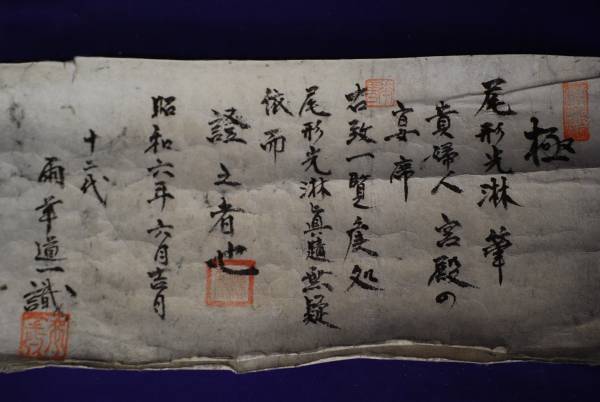 極
尾形光淋 筆
貴婦人 宮殿の
宴席
右致一覧處処
尾形光淋眞蹟無疑
依而
證之者也
昭和六年六月吉日
十二代
雨華道一識